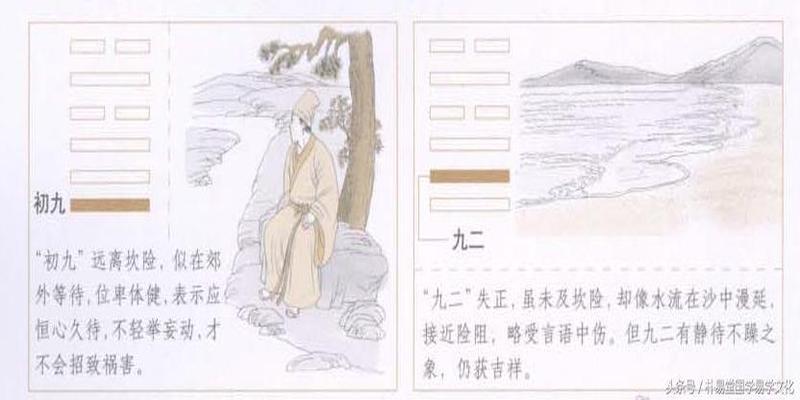 初九
“初九”远离坎险，似在郊
外等待，位卑体健，表示应
恒心久待，不轻举妄动，才
不会招致祸害。
九二
“九二”失正，虽未及坎险，却像水流在沙中漫延，
接近险阻，略受言语中伤。但九二有静待不躁之
象，仍获吉祥。
头条号/朴易堂国学易学文化